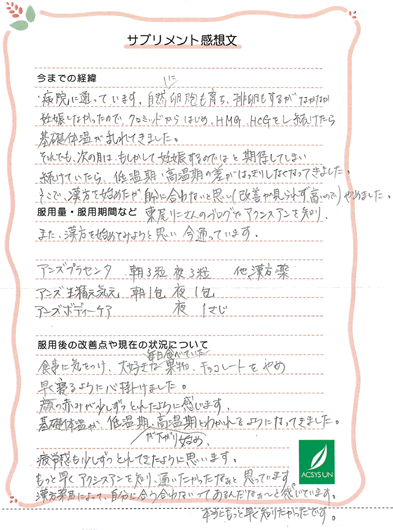 サプリメント感想文
今までの経緯
・病院に通っています。自然に卵胞も育ち、排卵もするがなかなか
妊娠しなかったので、クロミッドからはじめ、HMG、HCGをし続けたら
基礎体温が乱れてきました。
それでも、次の月は、もしかして妊娠するのではと期待してしまい
続けていたら、低温期・高温期の差がはっきりしなくなってきました。
そこで、漢方を始めたが自分に合わないと思い(改善が見られず高いので)やめました。
服用量・服用期間など
さんのブログでアクシスアンを知り、
また、漢方を始めてみようと思い今通っています。
アンズプラセンタ 朝3粒 夜3粒 他、漢方薬
アンズ生精元気元 朝1包 夜1包
アンズボディーケア 夜1さじ
服用後の改善点や現在の状況について
食事に気をつけ、大好きな毎日食べていた果物、チョコレートをやめ
早く寝るように心掛けました。
顔の赤みが少しずつとれたように感じます。
基礎体温が、低温期、高温期とわかれるようになってきました。
下がり始め、
疲労感も少しずつとれてきたように思います。
もっと早くアクシスアンを知り、通いたかったなぁと思っています。
漢方薬局によって、自分に合う合わないってあるんだなぁ〜と感じています。
本当にもっと早く知りたかったです。
ACSYSUN